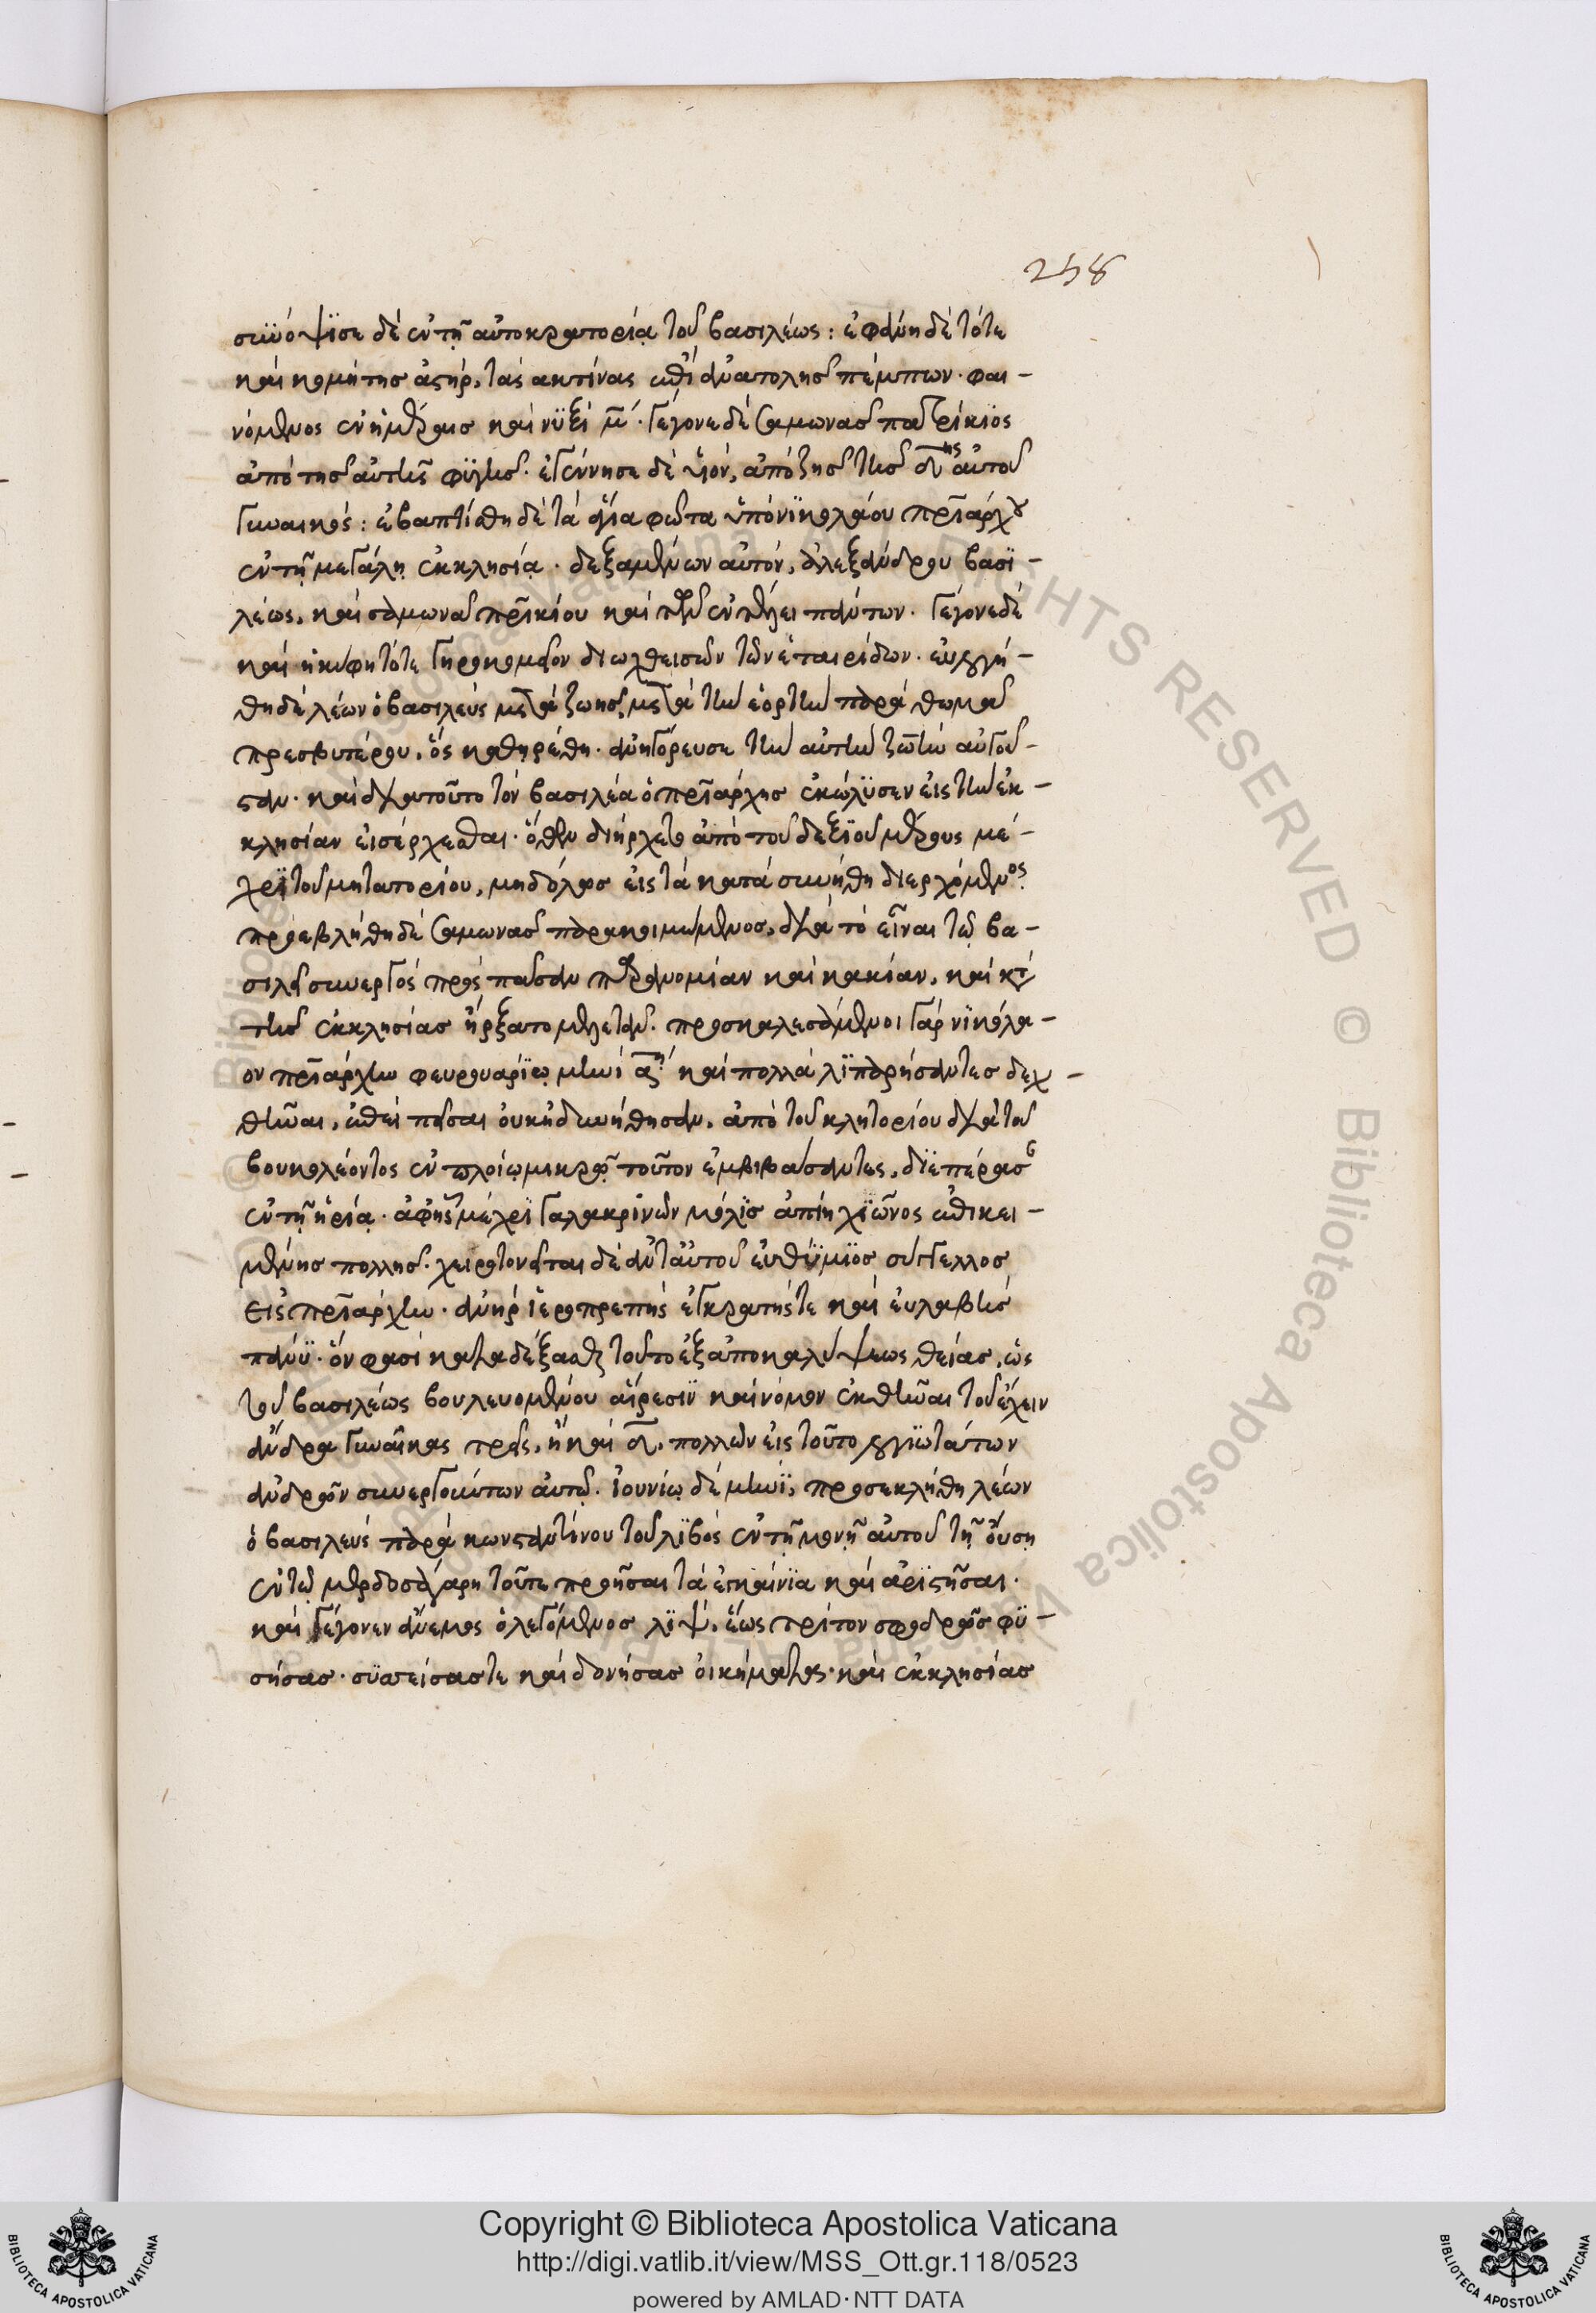 258
συνόψισε δὲ ἐν τῇ αὐτοκρατορίᾳ τοῦ βασιλέως: ἐφάνη δὲ τότε
καὶ κομήτης ἀστήρ, τὰς ακτίνας ἐπὶ ἀνατολῆς πέμπων· φαι-
νόμενος ἐν ἡμέραις καὶ νϋξὶ μ̅· γέγονε δὲ σαμωνᾶς πατρίκιος
ἀπὸ τῆς αὐτῆς φϋγῆς· ἐγέννησε δὲ υἱὸν, ἀπὸ ζωῆς τῆς δ̅ης αὐτοῦ
γυναικός: ἐβαπτίσθη δὲ τὰ ἅγια φῶτα ὑπὸ νϊκολάου πρῑάρχου
ἐν τῇ μεγάλῃ ἐκκλησίᾳ· δεξαμένων αὐτὸν, ἀλεξάνδρου βασϊ-
λέως, καὶ σαμωνᾶ πρ̅ικίου καὶ τῶν ἐν τέλει πάντων· γέγονε δὲ
καὶ
θη δὲ λέων ὁ βασιλεὺς μετὰ ζωῆς, μετὰ τὴν ἑορτὴν παρὰ θωμᾶ
πρεσβυτέρου, ὃς καθηρέθη· ἀνηγόρευσε τὴν αὐτὴν ζωὴν αὐγοῦ-
σταν· καὶ διὰ τοῦτο τὸν βασιλέα ὁ πρῑάρχης ἐκώλϋσεν εἰς τὴν ἐκ-
κλησίαν εἰσέρχεσθαι· ὅθεν διήρχετο ἀπὸ τοῦ δεξϊοῦ μέρους μέ-
χρϊ τοῦ μητατορίου, μηδόλως εἰς τὰ κατὰ συνήθη διερχόμενος.
προεβλήθη δὲ σαμωνᾶς παρακοιμώμενος, διὰ τὸ εἶναι τῷ βα-
σιλεῖ συνεργὸς πρὸς πᾶσαν παρανομίαν καὶ κακίαν, καὶ κτ̀
τῆς ἐκκλησίας ἤρξατο μελετᾶν· προσκαλεσάμενοι γὰρ νϊκόλα-
ον πρῑάρχην φευρουαρίῳ μηνὶ α̅ῃ καὶ πολλὰ λϊπαρήσαντες δεχ-
θῆναι, ἐπεὶ πεῖσαι οὐκ ἠδυνήθησαν, ἀπὸ τοῦ κλητορίου διὰ τοῦ
βουκολέοντος ἐν πλοίῳ μικρῷ τοῦτον ἐμβιβάσαντες, δϊεπέρασ
ἐν τῇ ἡρίᾳ· ἀφῆς μέχρϊ γαλακρινῶν μόλϊς ἀπίη χϊῶνος ἐπικει-
μένης πολλῆς· χειροτονεῖται δὲ ἀντ αὐτοῦ ἐυθϋμϊος σύγγελλος
εἰς πρῑάρχην· ἀνὴρ ἱεροπρεπὴς ἐγκρατής τε καὶ ἐυλαβὴς
πάνϋ· ὃν φασὶ καταδέξασθαι τοῦτο ἐξ ἀποκαλύψεως θείας, ὡς
τοῦ βασιλέως βουλευομένου αἵρεσϊν καὶ νόμον ἐκθῆναι τοῦ ἔχειν
ἄνδρα γυναῖκας τρεῖς, ἢ καὶ δ̅, πολλῶν εἰς τοῦτο λογϊωτάτων
ἀνδρῶν συνεργούντων αὐτῷ· ἰουνίῳ δὲ μηνϊ, προσεκλήθη λέων
ὁ βασιλεὺς παρὰ κωνσταντίνου τοῦ λϊβὸς ἐν τῇ μονῇ αὐτοῦ τῇ οὔσῃ
ἐν τῷ μερδοσαγάρη τοῦ τε προῆσαι τὰ ἐγκαίνϊα καὶ ἀρϊστῆσαι·
καὶ γέγονεν ἄνεμος ὁ λεγόμενος λϊψ, ἕως τρίτον σφοδρῶς φϋ-
σήσας· σϋσείσας τε καὶ δονήσας οἰκήματας· καὶ ἐκκλησίας
Copyright © Biblioteca Apostolica Vaticana
http://digi.vatlib.it/view/MSS_Ott.gr.118/0523
powered by AMLAD·NTT DATA